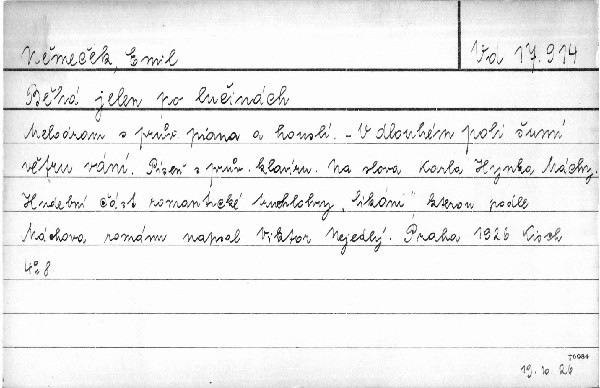 Němeček, Emil
Vd 17.914
Běhá jelen po lučinách
Melodram s prův. piana a houslí. - V dlouhém poli šumí
větru vání. Píseň s prův. klavíru. Na slova Karla Hynka Máchy.
Hudební část romantické truchlohry "Cikáni" kterou podle
Máchova románu napsal Viktor Nejedlý. Praha 1926 Kisch
4° 8
70984
19. 10 26